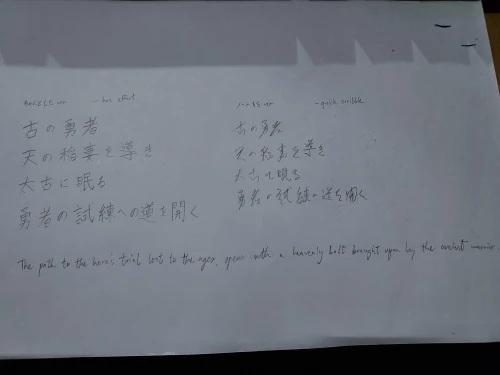 - best effort
古の勇者
天の稲妻を導き
太古に眠る
勇者の試練への道を開く
- quick scribble
古の勇者
天の稲妻を導き
太古に眠る
勇者の試練の道を開く
The path to the hero's trial lost to the ages, opens with a heavenly bolt brought upon by the ancient warrior